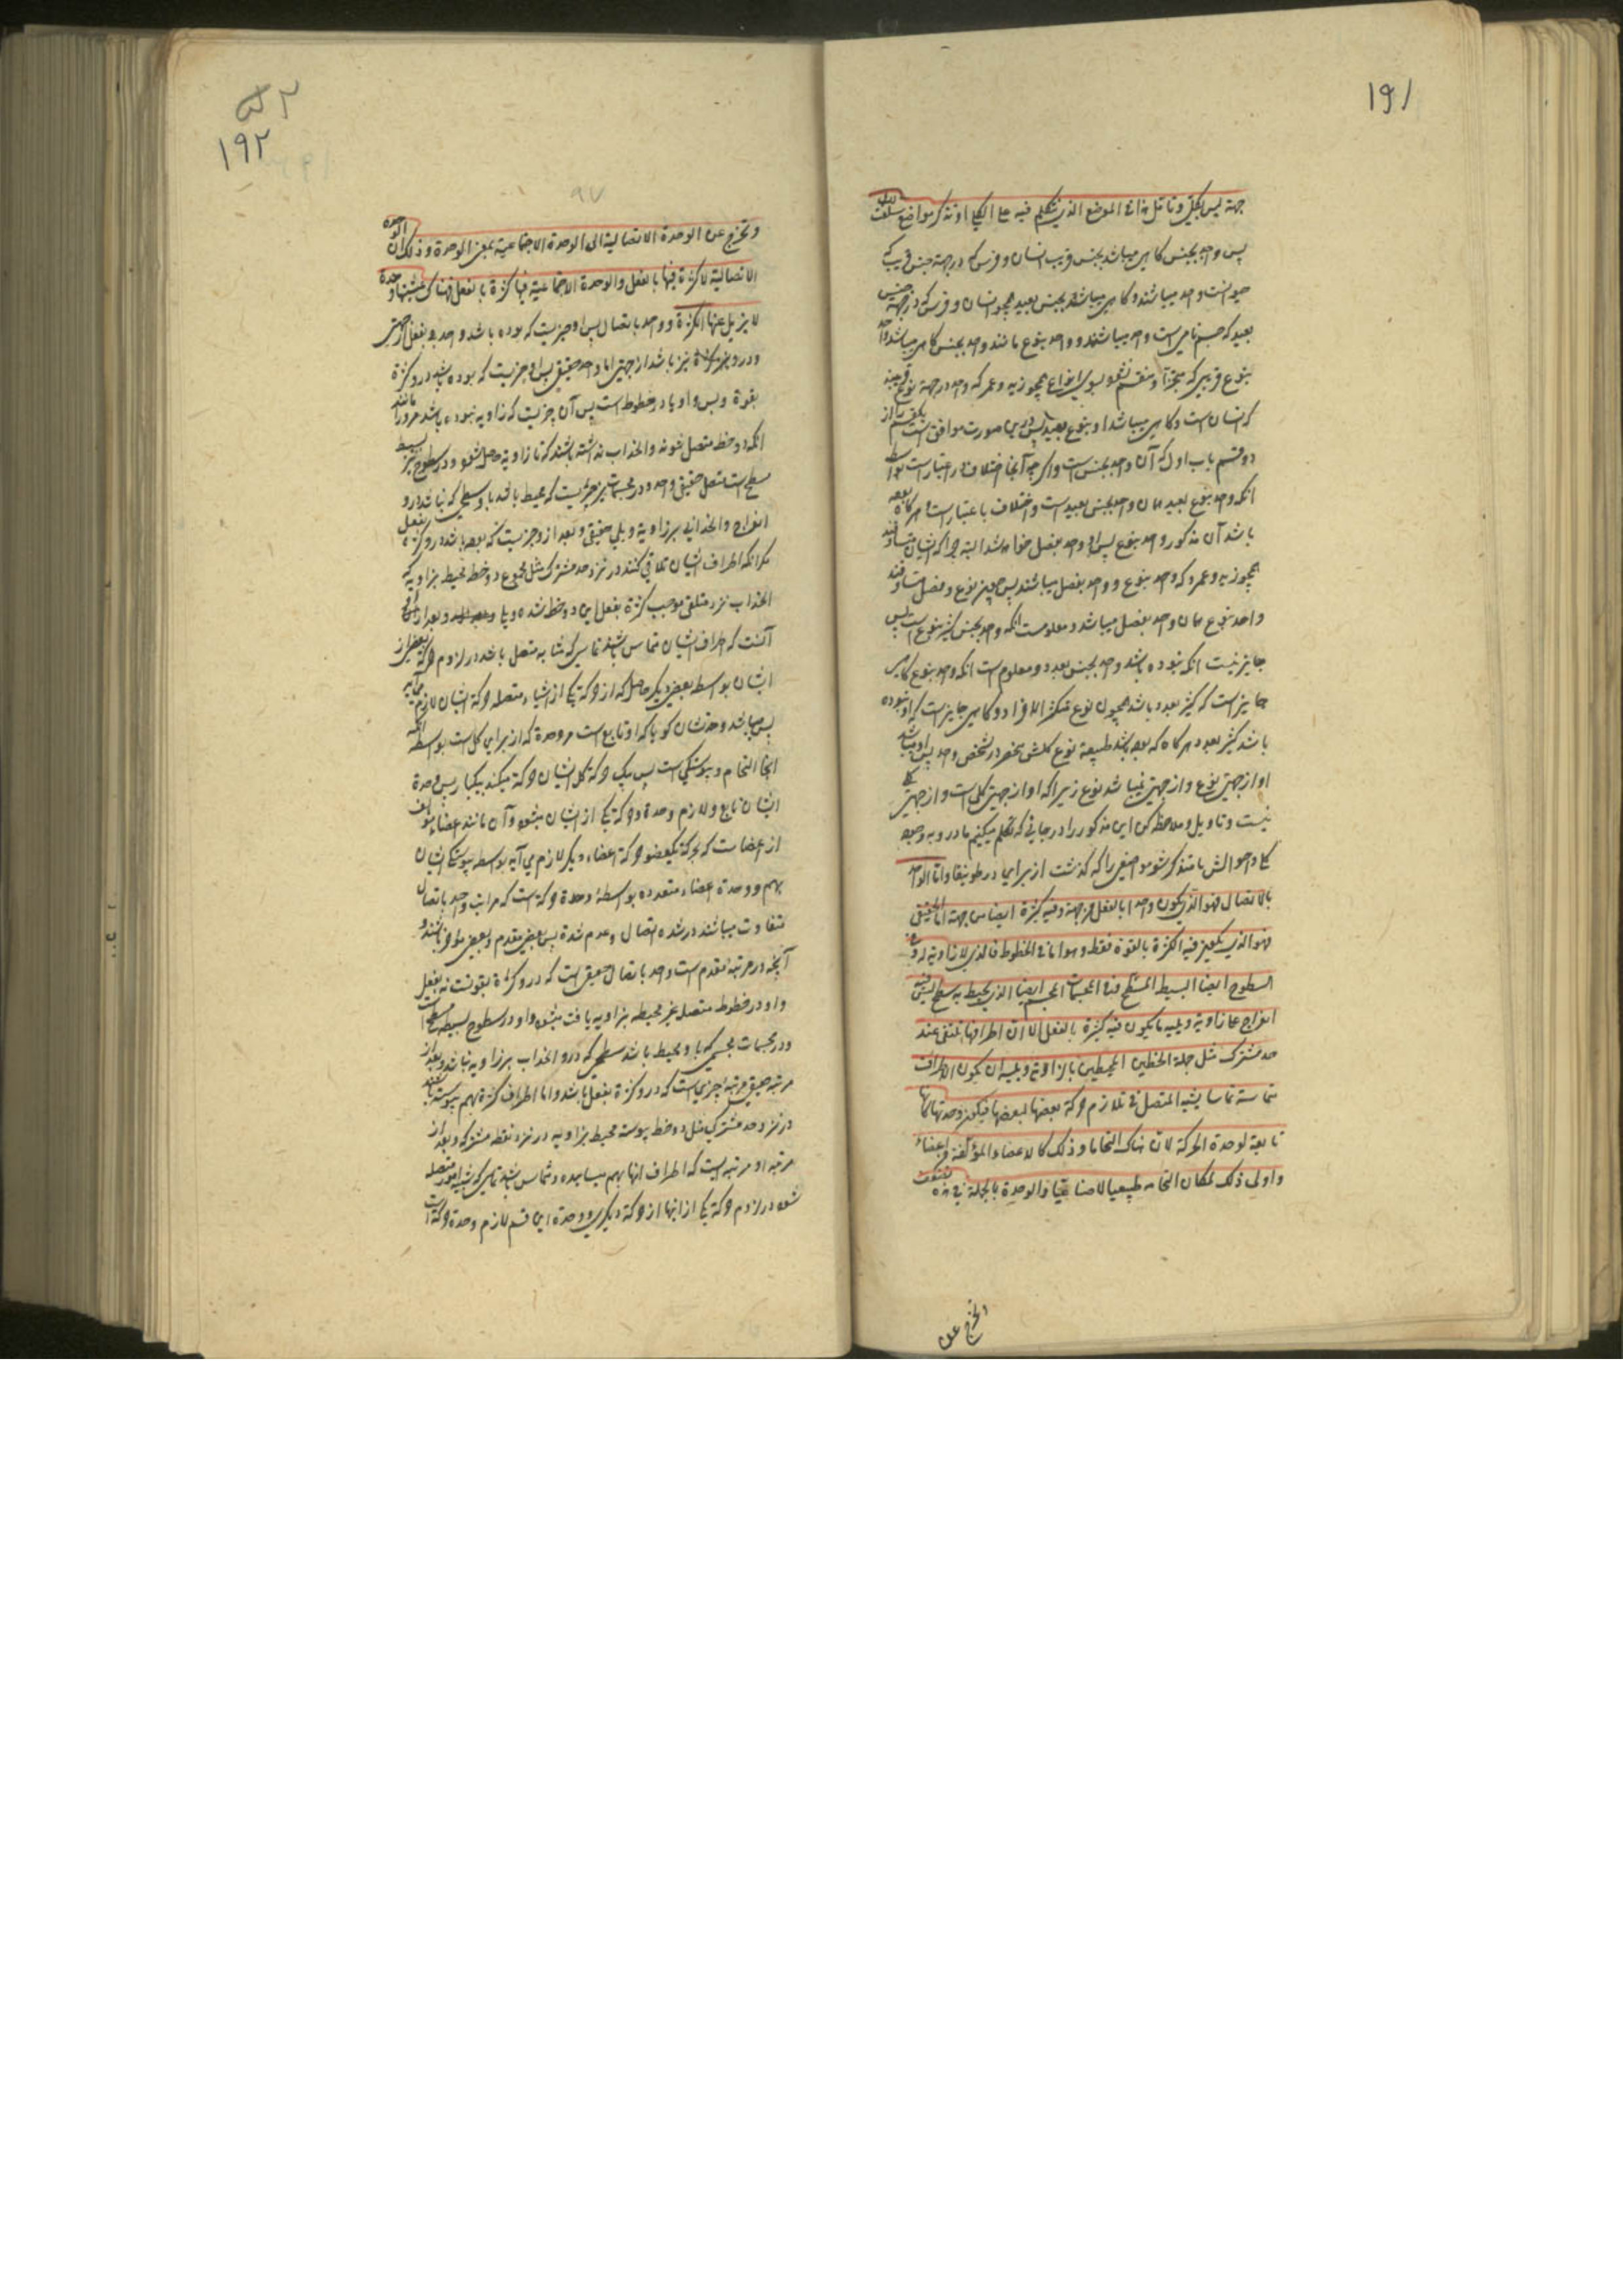 191
جهة ليس بكلي وتأمل هذا في الموضع الذي نتكلم فيه على الكلي او تذكر مواضع سلفت
پس واحد بجنس گاهی میباشد بجنس قریب انسان و فرس که در جهة جنس قریب که
حیوانست واحد میباشند و گاهی میباشد بجنس بعید همچو انسان و فرس که در جهة جنس
بعید که جسم نامی است واحد میباشند و واحد بنوع مانند واحد بجنس گاهی میباشد واحد
بنوع قریبی که متجزا و منقسم نشود بسوی انواع همچو زید و عمر که واحد در جهة نوع قریبند
که انسان است و گاهی میباشد او بنوع بعید پس درین صورت موافق است
دو قسم باب اول که آن واحد بجنس است و اگرچه آنجا اختلاف در اعتبار است بواسطه
انکه واحد بنوع بعید همان واحد بجنس بعید است و اختلاف باعتبار است و هرگاه بوده
باشد آن مذکور واحد بنوع پس او واحد بفصل خواهد شد البته چرا که ایشان متساوقند
همچو زید و عمرو که واحد بنوع و واحد بفصل میباشند پس چون نوع و فصل متساوقند
واحد بنوع همان واحد بفصل میباشد و معلومست انکه واحد بجنس کثیر بنوع است پس
جایز نیست انکه بنوده باشد واحد بجنس بعدد و معلوم است انکه واحد بنوع گاهی
جایز است که کثیر بعدد باشد همچون نوع متکثر الافراد و گاهی جایز است که او نبوده
باشد کثیر بعدد هرگاه که بوده باشد طبیعة نوع کلش منحصر در شخص واحد پس او میباشد
او از جهتی نوع و از جهتی نمیباشد نوع زیرا که او از جهتی کلی است و از جهتی کلی
نیست و تاویل و ملاحظه کن این مذکور را در جائی که تکلم میکنیم ما درو به وجود
کلی و احوالش یا متذکر شو مواضعی را که گذشت از برای در طونیقا واما الواحد
بالاتصال فهو الذي يكون واحدا بالفعل من جهة وفيه كثرة ايضا من جهة اما الحقيقي
فهو الذي يكون فيه الكثرة بالقوة فقط وهو اما في الخطوط فالذي لا زاوية له وفي
السطوح ايضا البسيط المسطح في المجسمات الجسم ايضا الذي يحيط به سطح ليس فيه
انفراج على زاوية ويليه ما يكون فيه كثرة بالفعل الا ان اطرافها تلتقي عند
حد مشترك مثل جملة الخطين المحيطين بالزاوية ويليه ان يكون الاطراف
متماسة تماسا يشبه المتصل في تلازم حركة بعضها لبعضها فيكون وحدتها كانها
تابعة لوحدة الحركة لان هناك التحاما وذلك كالاعضاء المؤلفة من اعضاء
واولى ذلك ما كان التحامه طبيعيا لا صناعيا والوحدة بالجملة في هذه
تخرج عن
192
97
وتخرج عن الوحدة الاتصالية الى الوحدة الاجتماعية بمعنى الوحدة وذلك ان الوحدة
الاتصالية لا كثرة فيها بالفعل والوحدة الاجتماعية فيها كثرة بالفعل فهناك وحدة
لا يزيل عنها الكثرة و واحد باتصال پس او چیزیست که بوده باشد واحد بفعل از جهتی
و درو نیز کثرة نیز باشد از جهتی اما واحد حقیقی پس او چیزیست که بوده باشد درو کثرة
بقوة و بس و او یا در خطوط است پس آن چیزیست که زاویه نبوده باشد مرو را مانند
انکه دو خط متصل شوند و انحداب نداشته باشند که تا زاویه حاصل شود و در سطوح نیز بسیط
مسطح است متصل حقیقی واحد و در مجسمات نیز چیزیست که محیط باشد باو سطحی که نباشد درو
انفراج و انحدابی بر زاویه و یلی حقیقی و بعد ازو چیزیست که بوده باشد درو کثرة بفعل
مگر انکه اطراف ایشان تلاقی کنند در نزد حد مشترک مثل مجموع دو خط محیط بزاویه که
انحداب نزد متلقی موجب کثرة بفعل این دو خط شده و بعد ازان
آنست که اطراف ایشان متماس باشد تماسی که مشابه متصل باشد در لزوم حرکة بعضی از
ایشان بواسطه بعضی دیگر حاصل که از حرکة یکی از اشیاء متصله حرکة ایشان لازم می آید
پس میباشد وحدتشان گویا که او تابع است مر وحدة که از برای کل است بواسطه انکه
اینجا التحام و پیوستگی است پس بیک حرکة کل ایشان حرکة میکند بیکبار پس وحدة
ایشان تابع و لازم وحدة حرکة یکی از ایشان میشود و آن مانند اعضاء مؤلف
از اعضا است که بحرکة یکعضو حرکة اعضاء دیگر لازم می آید بواسطه پیوستگی ایشان
بهم و وحدة اعضاء متعدده بواسطهٔ وحدة حرکة است که مراتب واحد باتصال
متفاوت میباشند در شدة اتصال و عدم شدة پس بعضی مقدم و بعضی مؤخر باشند و
آنچه در مرتبه مقدم است واحد باتصال حقیقی است که درو کثرة بقوتست نه بفعل
و او در خطوط متصل غیر محیطه بزاویه یافت میشود و او در سطوح بسیطه مسطح است
و در مجسمات مجسمی که باو محیط باشد سطحی که درو انحداب بر زاویه نباشد و بعد از
مرتبه حقیقی مرتبه چیزی است که درو کثرة بفعل باشد و اما اطراف کثرة بهم پیوسته باشد
در نزد حد مشترک مثل دو خط پیوسته محیط بزاویه در نزد نقطه مشترکه و بعد از
مرتبه او مرتبه ایست که اطراف انها بهم میساییده و متماس باشد تماسی که شبیه امور متصله
شود در لزوم حرکة یکی از انها از حرکة دیگری و وحدة این قسم لازم وحدة حرکة است